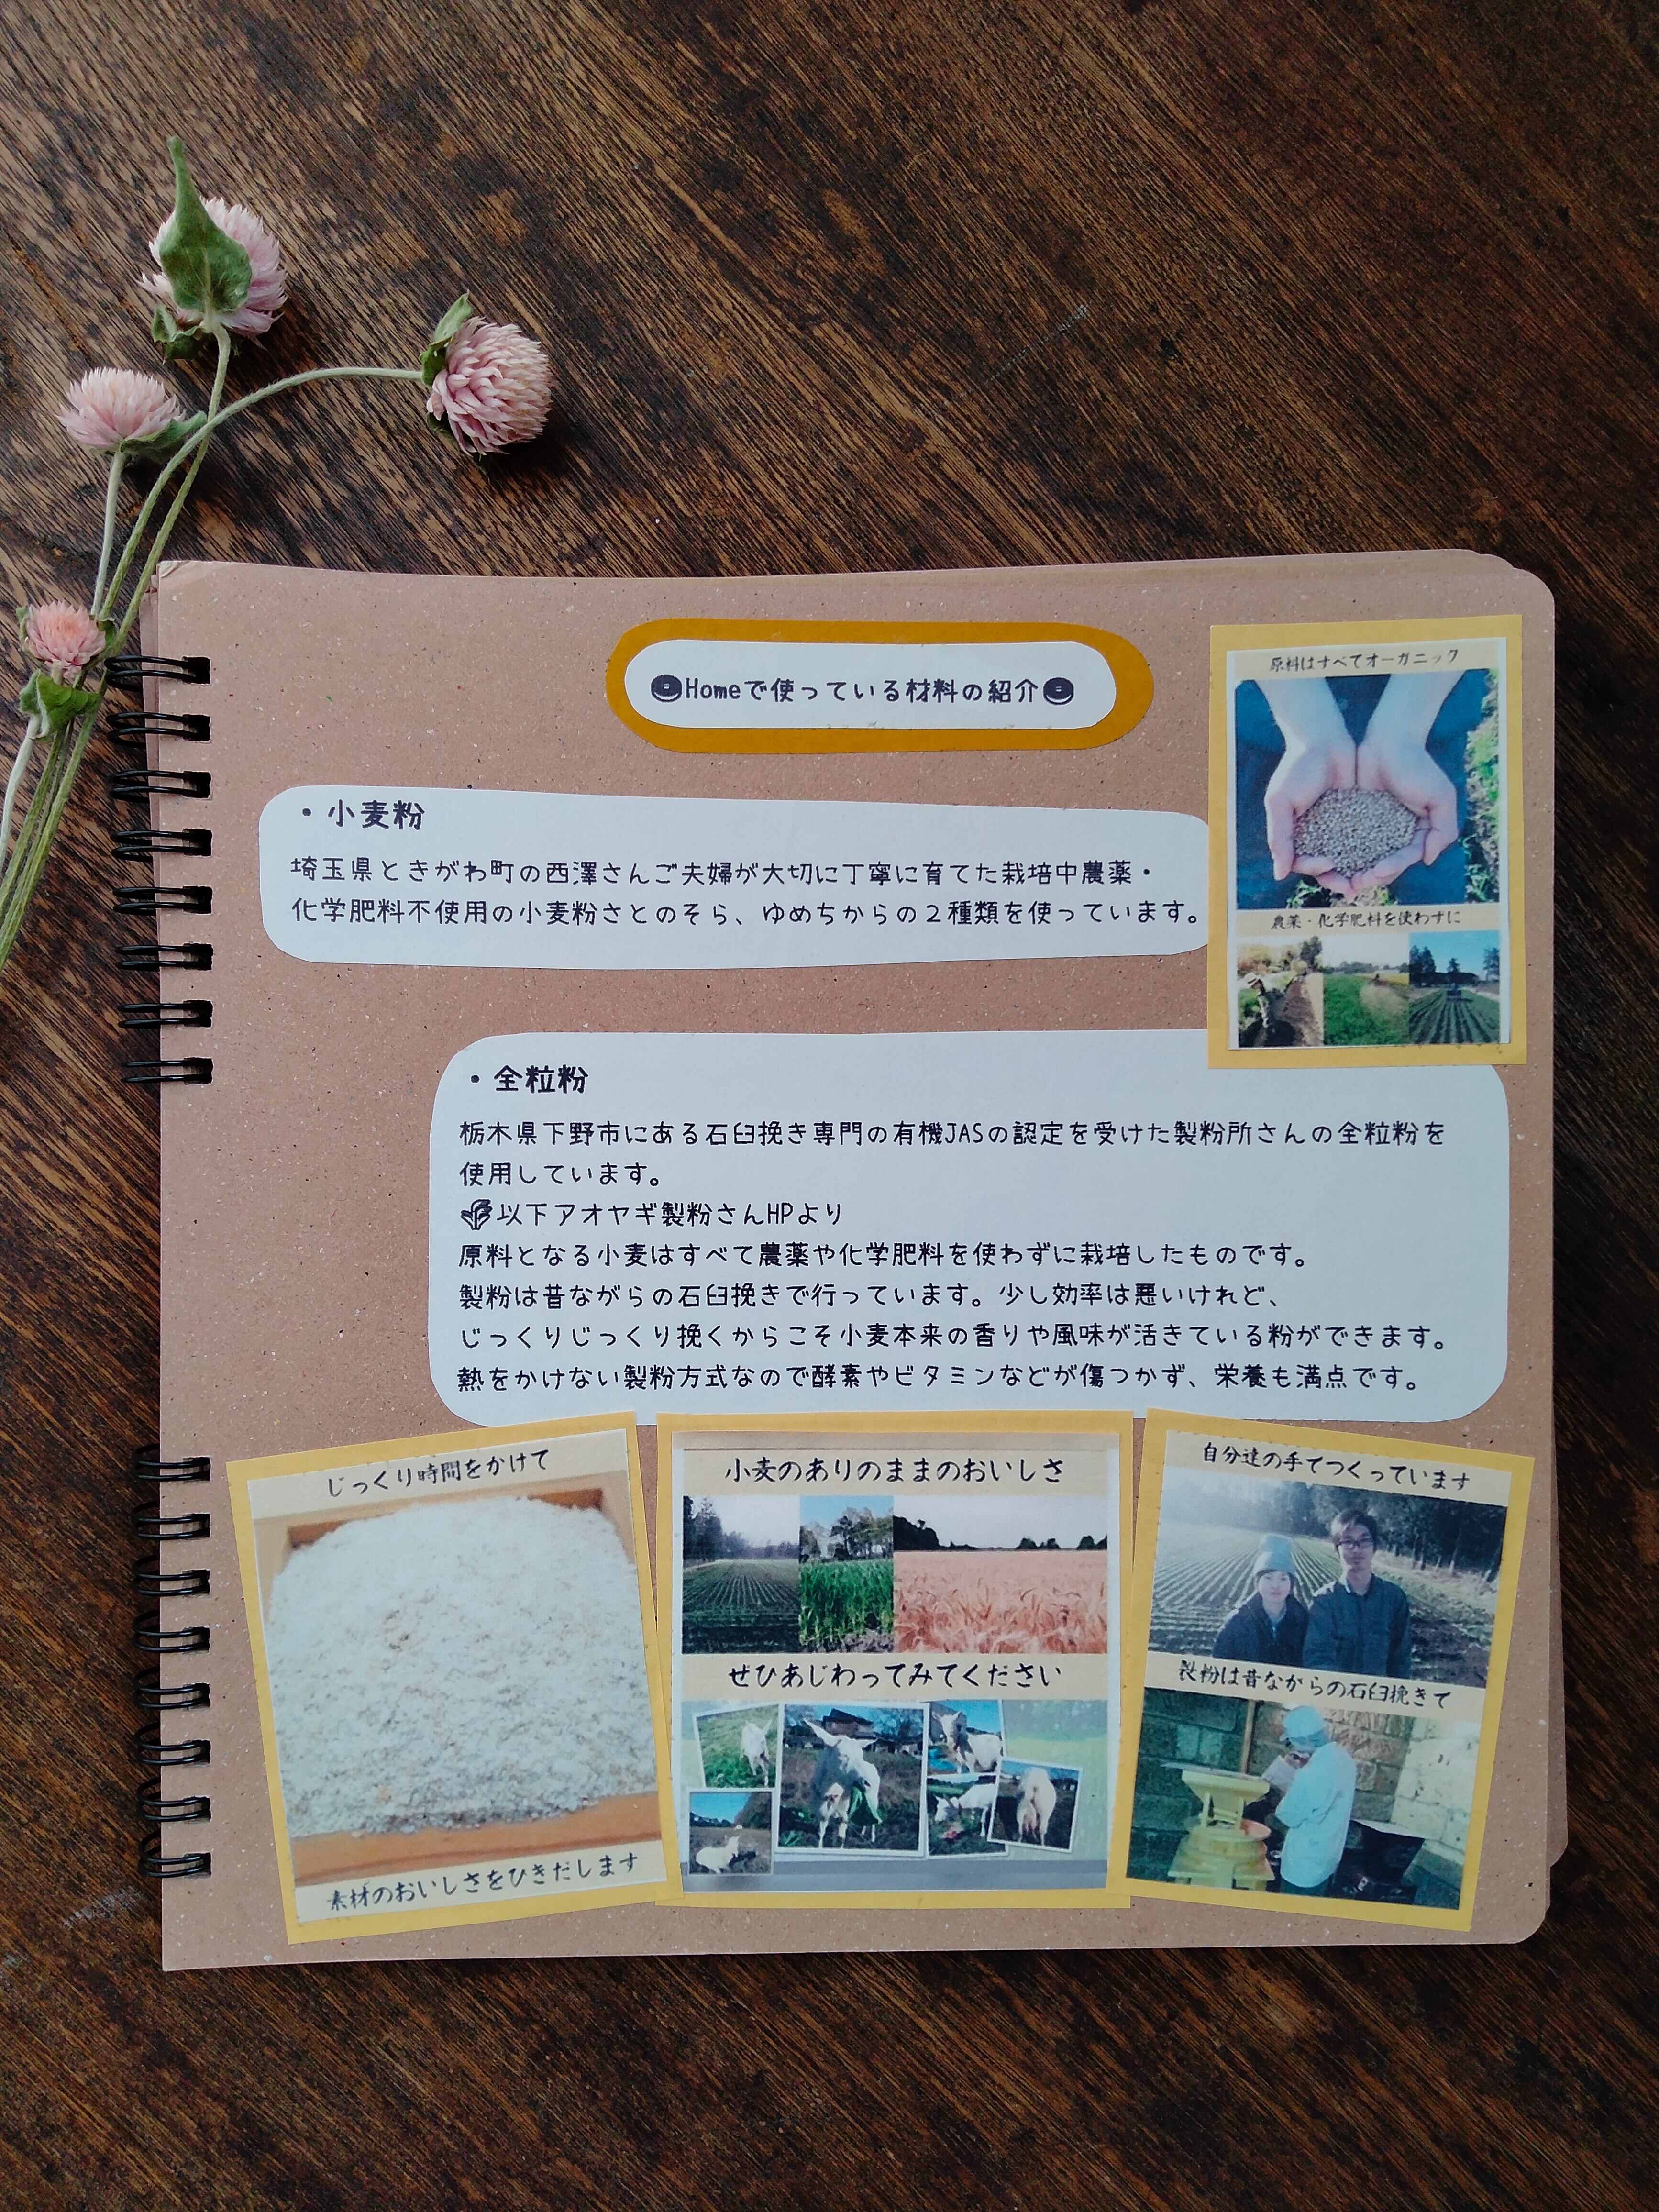 Homeで使っている材料の紹介
原料はすべてオーガニック
農薬・化学肥料を使わずに
・小麦粉
埼玉県ときがわ町の西澤さんご夫婦が大切に丁寧に育てた栽培中農薬・
化学肥料不使用の小麦粉さとのそら、ゆめちからの2種類を使っています。
・全粒粉
栃木県下野市にある石臼挽き専門の有機JASの認定を受けた製粉所さんの全粒粉を
使用しています。
以下アオヤギ製粉さんHPより
原料となる小麦はすべて農薬や化学肥料を使わずに栽培したものです。
製粉は昔ながらの石臼挽きで行っています。少し効率は悪いけれど、
じっくりじっくり挽くからこそ小麦本来の香りや風味が活きている粉ができます。
熱をかけない製粉方式なので酵素やビタミンなどが傷つかず、栄養も満点です。
じっくり時間をかけて
素材のおいしさをひきだします
小麦のありのままのおいしさ
ぜひあじわってみてください
自分達の手でつくっています
製粉は昔ながらの石臼挽きで